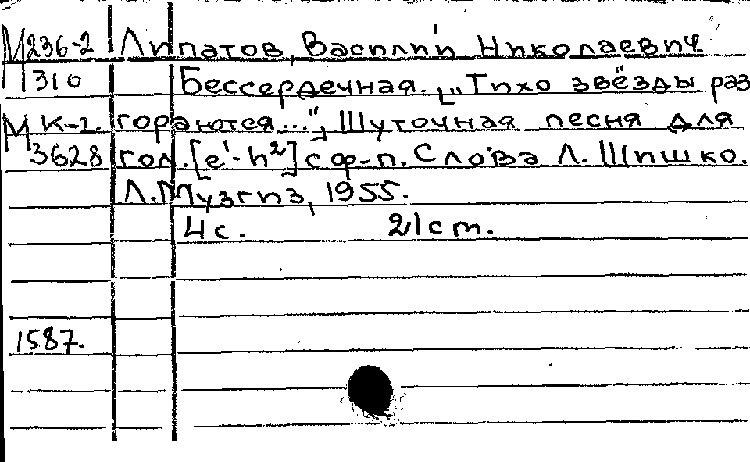 М236-2 Липатов, Василий Николаевич
310 Бессердечная. ["Тихо звёзды раз
М К-1. гораются..."] Шуточная песня для
3628 гол. [e¹-h²] с ф-п. Слова Л. Шишко.
Л. Музгиз, 1955.
4с. 21cm.
1587.